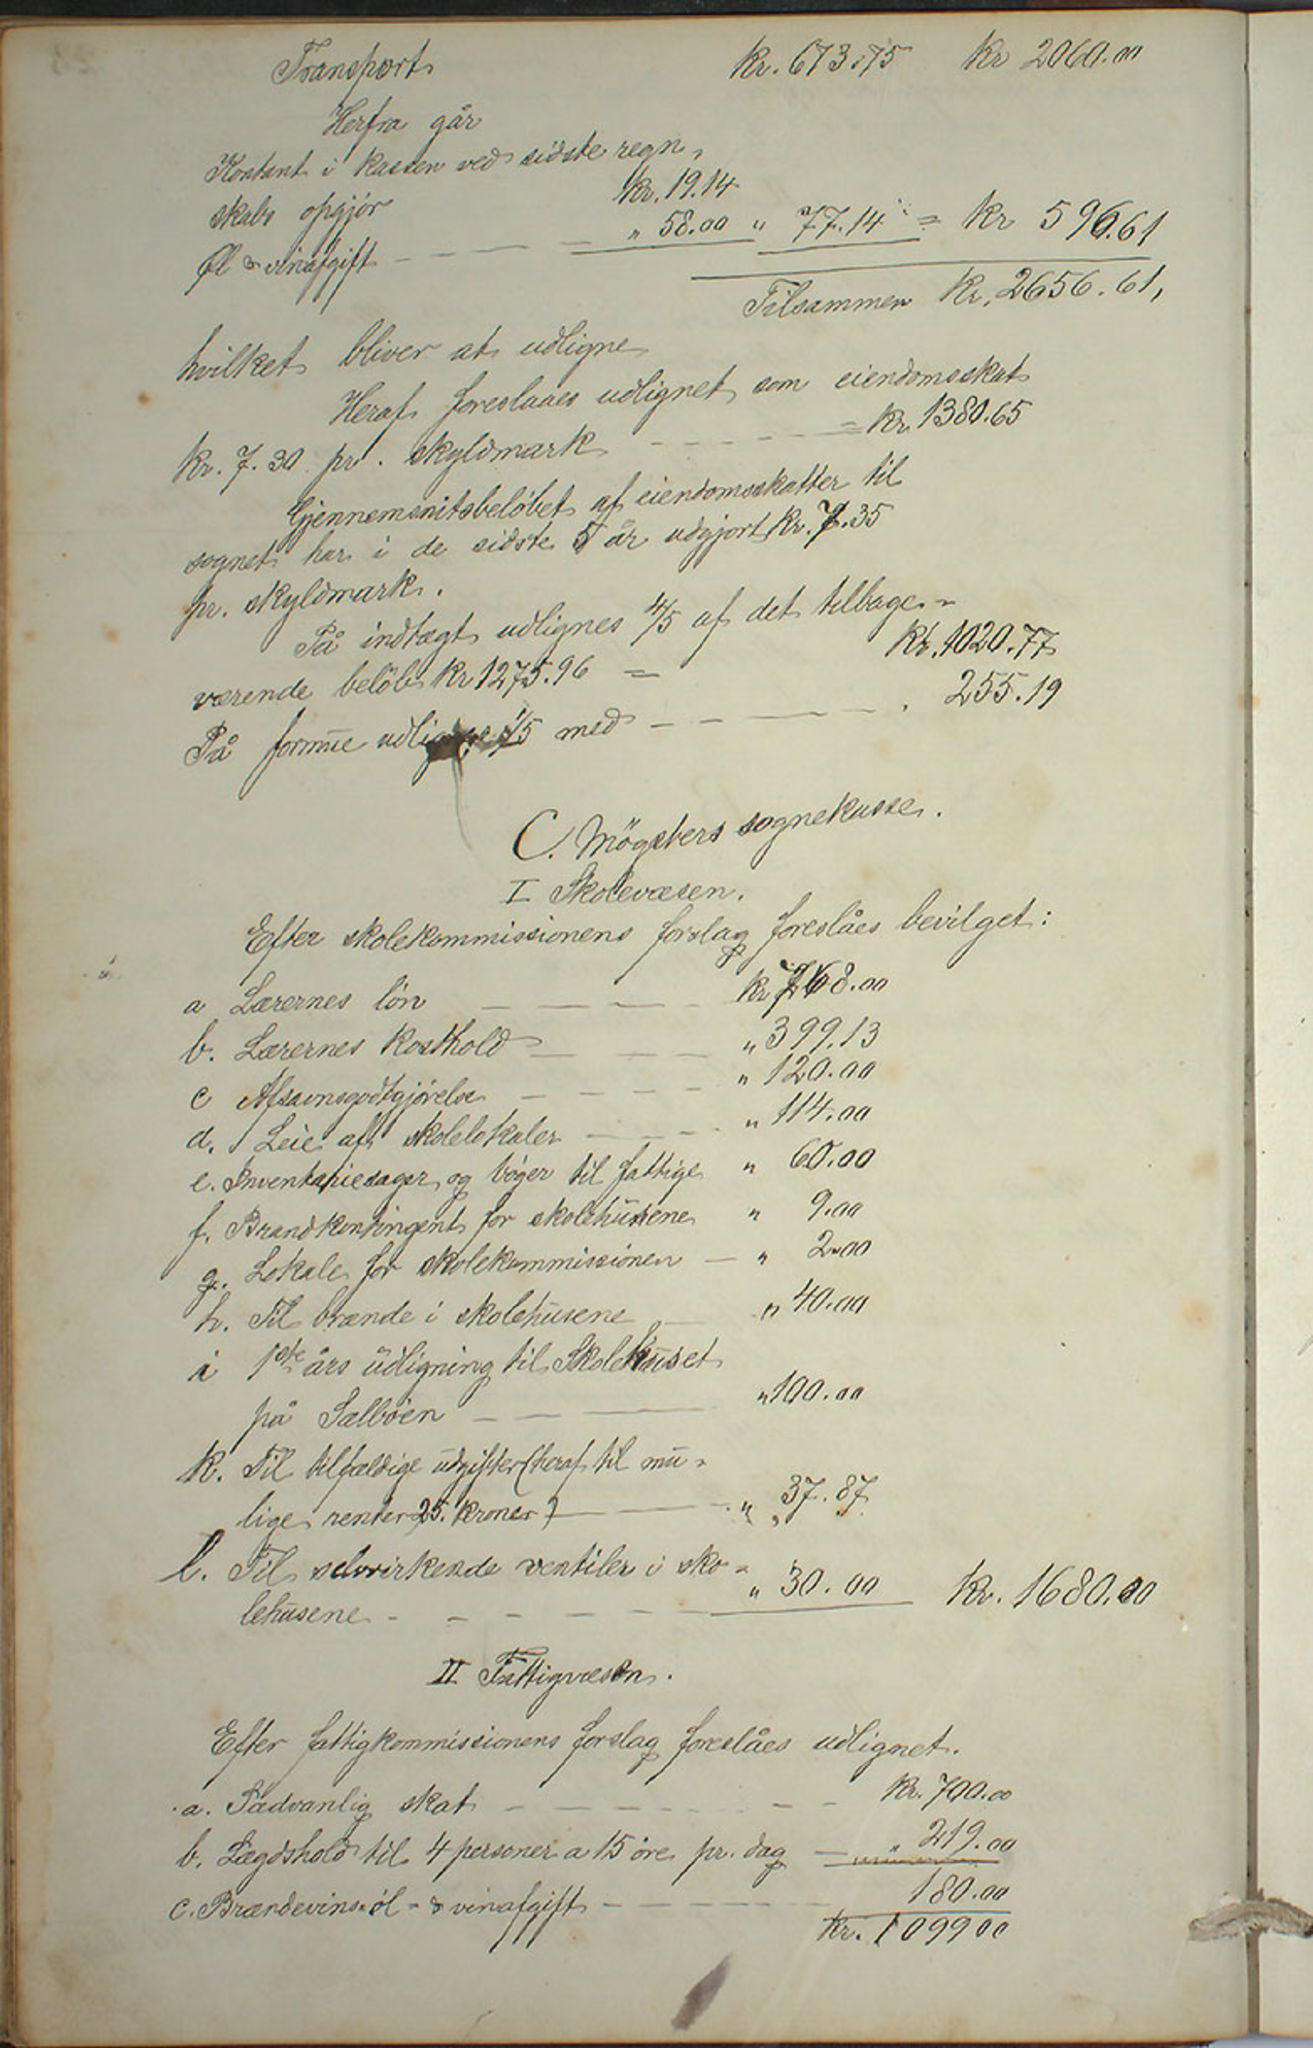 Transport kr. 673.75 kr 2060.00
Herfra går
Kontant i kassen ved sidste regn-
skabs opgjør kr. 19.14
Øl & vinafgift " 58.00 " 77.14 = kr 596.61
Tilsammen kr. 2656.61,
hvilket bliver at udligne
Heraf foreslaaes udlignet som eiendomsskat
kr. 7.30 pr. skyldmark = kr. 1380.65
Gjennemsnitsbeløbet af eiendomsskatter til
sognet har i de sidste 5 år udgjort kr. 7.35
pr. skyldmark.
På indtægt udlignes 4/5 af det tilbage-
værende beløb kr 1275.96 = kr. 1020.77
På formue udlignes 1/5 med 255.19
C. Mögsters sognekasse.
I Skolevæsen.
Efter skolekommissionens forslag foreslåes bevilget:
a Lærernes løn kr 768.00
b. Lærernes kosthold " 399.13
c Afsavnsgodtgjörelse " 120.00
d. Leie af skolelokaler " 114.00
e. Inventariesager og bøger til fattige " 60.00
f. Brandkontingent for skolehusene " 9.00
g. Lokale for skolekommissionen " 2.00
h. Til brænde i skolehusene " 40.00
i 1ste års udligning til Skolehuset
på Sælbøen " 100.00
k. Til tilfældige udgifter (heraf til mu-
lige renter 25. kroner) " 37.87
l. Til selvvirkende ventiler i sko-
lehusene " 30.00 kr. 1680.00
II Fattigvæsen.
Efter fattigkommissionens forslag foreslåes udlignet.
a. Sædvanlig skat kr. 700.00
b. Lægdshold til 4 personer a 15 øre pr. dag " 219.00
c. Brændevins-øl- & vinafgift 180.00
kr. 1099 00